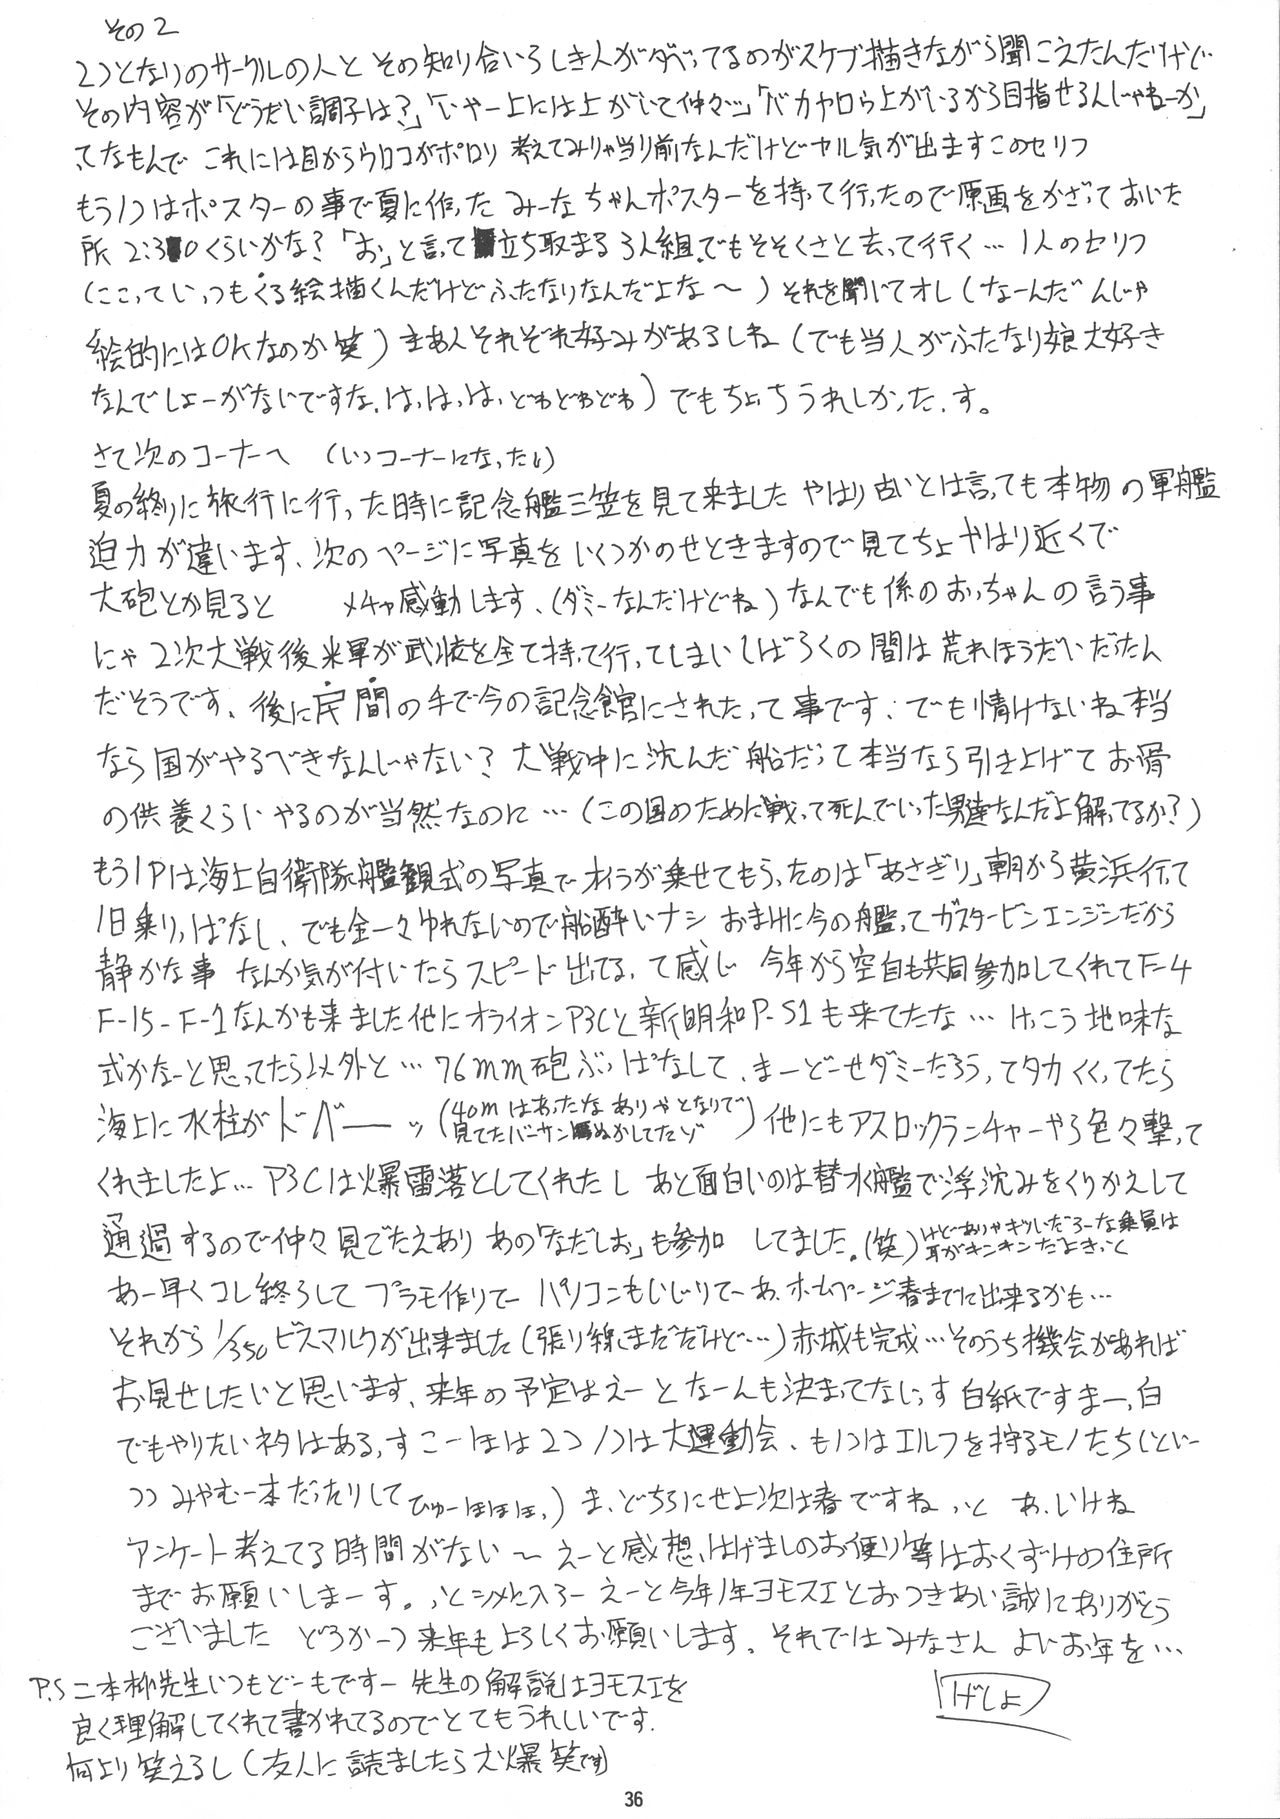 その2
2つとなりのサークルの人と その知り合いらしき人がダベってるのがスケブ描きながら聞こえたんだけど
その内容が「どうだい調子は?」「いやー上には上がいて仲々…」「バカヤロウ上がいるから目指せるんじゃねーか」
ってなもんで これには目からウロコがポロリ 考えてみりゃ当り前なんだけどヤル気が出ますこのセリフ
もう1つはポスターの事で夏に作った みーなちゃんポスターを持って行ったので原画をかざっておいた
所 2:30くらいかな? 「おっ」と言って立ち止まる3人組、でもそそくさと去って行く… 1人のセリフ
(ここっていっつもくる絵描くんだけどふたなりなんだよな〜) それを聞いてオレ (なーんだ んじゃ
絵的にはOKなのか 笑) まあ人それぞれ好みがあるしね (でも当人がふたなり娘大好き
なんでしょーがないですな、はっはっは、どわどわどわ) でもちょっちうれしかったっす。
さて次のコーナーへ (いつコーナーになったい)
夏の終りに旅行に行った時に記念艦三笠を見て来ました やはり古いとは言っても本物の軍艦
迫力が違います、次のページに写真をいくつかのせときますので見てちょ やはり近くで
大砲とか見ると メチャ感動します、(ダミーなんだけどね) なんでも係のおっちゃんの言う事
にゃ2次大戦後米軍が武装を全て持って行ってしまいしばらくの間は荒れほうだいだったん
だそうです、後に民間の手で今の記念館にされたって事です、でも情けないね本当
なら国がやるべきなんじゃない? 大戦中に沈んだ船だって本当なら引き上げて お骨
の供養くらいやるのが当然なのに… (この国のために戦って死んでいった男達なんだよ解ってるか?)
もう1Pは海上自衛隊艦観式の写真で オイラが乗せてもらったのは「あさぎり」朝から横浜行って
1日乗りっぱなし、でも全々ゆれないので船酔いナシ おまけに今の艦ってガスタービンエンジンだから
静かな事 なんか気が付いたらスピード出てるって感じ 今年から空自も共同参加してくれてF-4
F-15-F-1なんかも来ました他にオライオンP3Cと新明和P-S1も来てたな… けっこう地味な
式かなーと思ってたら以外と… 76mm砲ぶっぱなして、まーどーせダミーだろうってタカくくってたら
海上に水柱がドバーーッ (40mはあったな ありゃとなりで
見てたバーサンぬかしてたゾ) 他にもアスロックランチャーやら色々撃って
くれましたよ… P3Cは爆雷落としてくれたし あと面白いのは潜水艦で浮沈みをくりかえして
通過するので仲々見ごたえあり あの「なだしお」も参加 してました。(笑) けどありゃキツいだろーな乗員は
耳がキンキンだよきっと
あー早くコレ終らして プラモ作りてー パソコンもいじりてーあ、ホームページ春までに出来るかも…
それから 1/350ビスマルクが出来ました (張り線まだだけど…) 赤城も完成… そのうち機会があれば
お見せしたいと思います、来年の予定はえーと なーんも決まってないっす 白紙ですまーっ白
でもやりたいネタはあるっす こーほは2つ 1つは大運動会、もう1つはエルフを狩るモノたち (といー
つつみやむー本だったりして ひゅーほほほっ) ま、どちらにせよ次は春ですね っと あ、いけね
アンケート考えてる時間がない〜 えーと感想、はげましのお便り等はおくずけの住所
までお願いしまーす。っとシメに入ろー えーと今年1年ヨモスエとおつきあい誠にありがとう
ございました どうかーつ来年もよろしくお願いします、それではみなさん よいお年を…
げしょ
P.S 二本柳先生いつもどーもですー 先生の解説はヨモスエを
良く理解してくれて書かれてるのでとてもうれしいです、
何より笑えるし (友人に読ましたら大爆笑です)
36